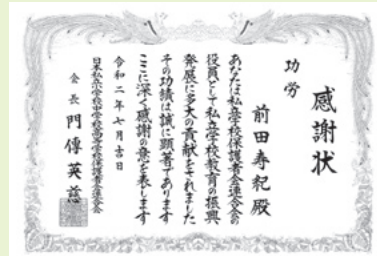 感謝状
功労
前田寿紀殿
あなたは私立学校保護者会連合会の
役員として私立学校教育の振興
発展に多大の貢献をされました
その功績は誠に顕著であります
ここに深く感謝の意を表します
令和二年七月吉日
日本私立小学校中学校高等学校保護者会連合会
会長 門傳英慈